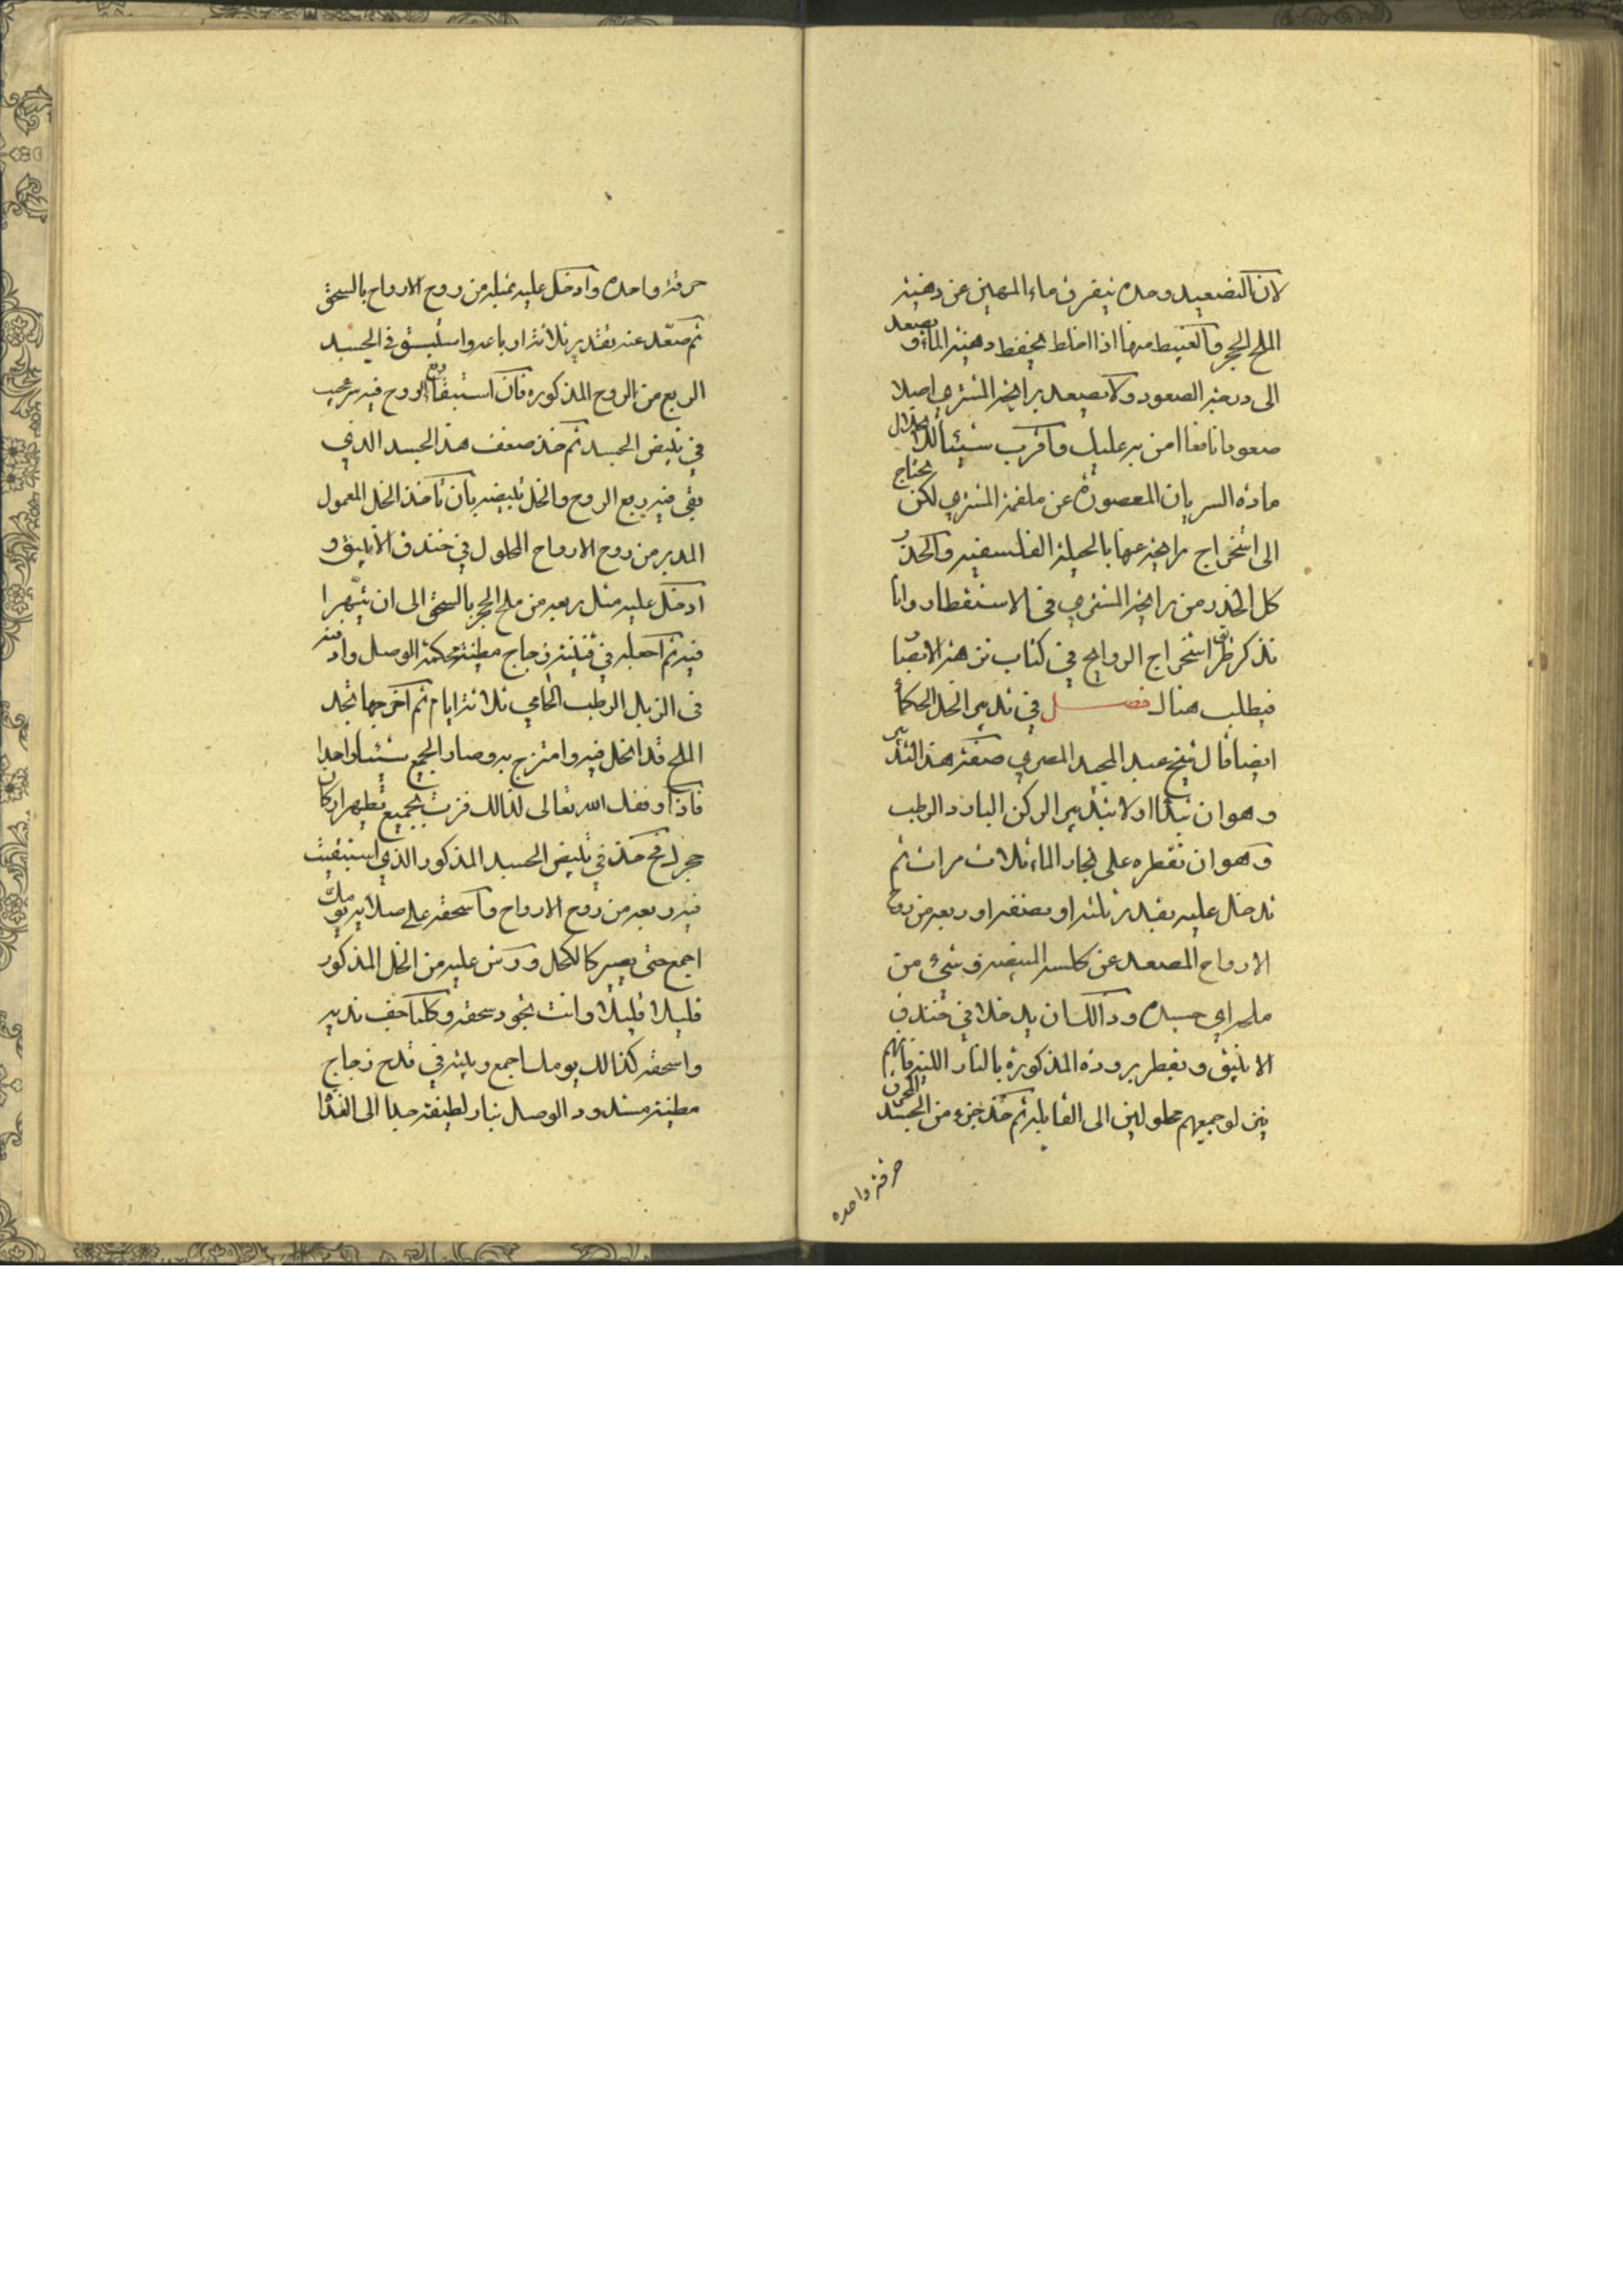 لان التصعيد وحده يتفرق ماء المهين عن دهنية
الملح الحجر والغبيط منها اذا اختلط يحفظ دهنية الماء ويصعد
الى درجة الصعود ولا يصعد برايحة المشتري اصلا
صعودا نافعا امن به عليك واقرب شيئا لذلك
مادة السريان المعصورة عن ملغمة المشتري لكن يحتاج
الى استخراج رايحة عنها بالحيلة الفلسفية والحذر
كل الحذر من رايحة المشتري في الاستقطار وانا
نذكر طرق استخراج الروايح في كتاب نزهة الابصار
فيطلب هناك فصل في تدبير الخل الحكماء
ايضا قال شيخ عبد المجيد المصري صفة هذا التدبير
وهو ان تبدا اولا بتدبير الركن البارد الرطب
وهو ان تقطره على بخار الماء ثلاث مرات ثم
تدخل عليه بقدر ثلثه او نصفه او ربعه من روح
الارواح المصعد عن كلس البيض وشيء من
ملح اي جسده وذالك ان يدخلا في خندق
الانبيق ويقطر برودة المذكورة بالنار اللينة فانهم
ينزلو جميعهم محلولين الى القابلة ثم خذ جزء من الجسد المحرق
حرقة واحده
حرقة واحده وادخل عليه بمثله من روح الارواح بالسحق
ثم صعّد عنه بقدر ثلاثة ارباعه واستبق في الجسد
الربع من الروح المذكوره فان استبقاء ربع الروح فيه سر عجيب
في تبيض الجسد ثم خذ ضعف هذا الجسد الذي
بقي فيه ربع الروح والخل تبيضه بان تاخذ الخل المعمول
المدبر من روح الارواح المحلول في خندق الانبيق و
ادخل عليه مثل ربعه من ملح الحجر بالسحق الى ان يتهرا
فيه ثم اجعله في قنينة زجاج مطينة محكمة الوصل وادفنه
في الزبل الرطب الحامي ثلاثة ايام ثم اخرجها تجد
الملح قد انحل فيه وامتزج به وصار الجميع شيئا واحدا
فاذا وفقك الله تعالى لذالك فزت بجميع تطهير اركان
حجرك فخذ في تبيض الجسد المذكور الذي استبقيت
فيه ربعه من روح الارواح واسحقه على صلايه يومك
اجمع حتى يصير كالكحل ورش عليه من الخل المذكور
قليلا قليلا وانت تجود سحقه وكلما جف نديه
واسحقه كذالك يومك اجمع وبيته في قدح زجاج
مطينة مسدود الوصل بنار لطيفة جدا الى الغداة